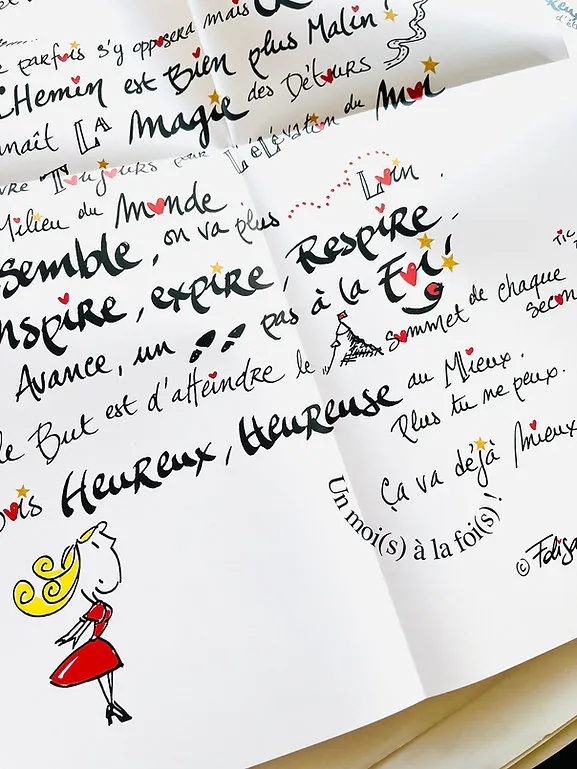 parfois s'y opposera mais
CHemin est Bien plus Malin !
naît LA Magie des Détours
vre Toujours pour L'éLévation du Moi
Milieu du Monde
semble, on va plus Loin.
nspire, expire, Respire,
Avance, un pas à la Foi !
le But est d'atteindre le sommet de chaque
secon
ois Heureux, Heureuse au Mieux.
Plus tu ne peux.
Ça va déjà Mieux
Un moi(s) à la foi(s) !
© Folisa